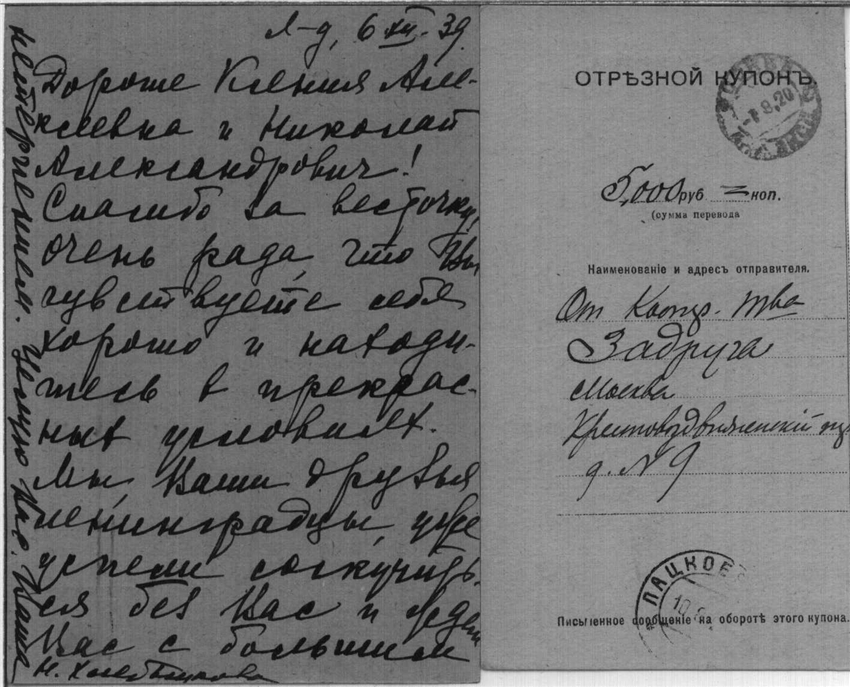 Л-д, 6 XII-39.
Дорогие Ксения Але-
ксеевна и Николай
Александрович!
Спасибо за весточку,
очень рада, что Вы
чувствуете себя
хорошо и находи-
тесь в прекрас-
ных условиях.
Мы, Ваши друзья
ленинградцы, уже
успели соскучить-
ся без Вас и ждем
Вас с большим
нетерпением. Целую Вас. Ваша
Н.
ОТРѢЗНОЙ КУПОНЪ.
5,000 руб = коп.
(сумма перевода
Наименованіе и адресъ отправителя.
От Коопер. тва
Задруга
Москва
Крестовоздвиженскій пер
д. N 9
ПАЦКОЕ
Письменное сообщеніе на оборотѣ этого купона.